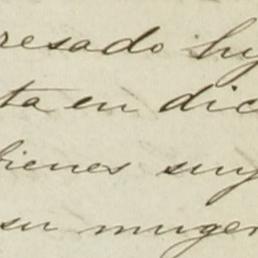 resado hy
ta en dic
bienes suy
su muger